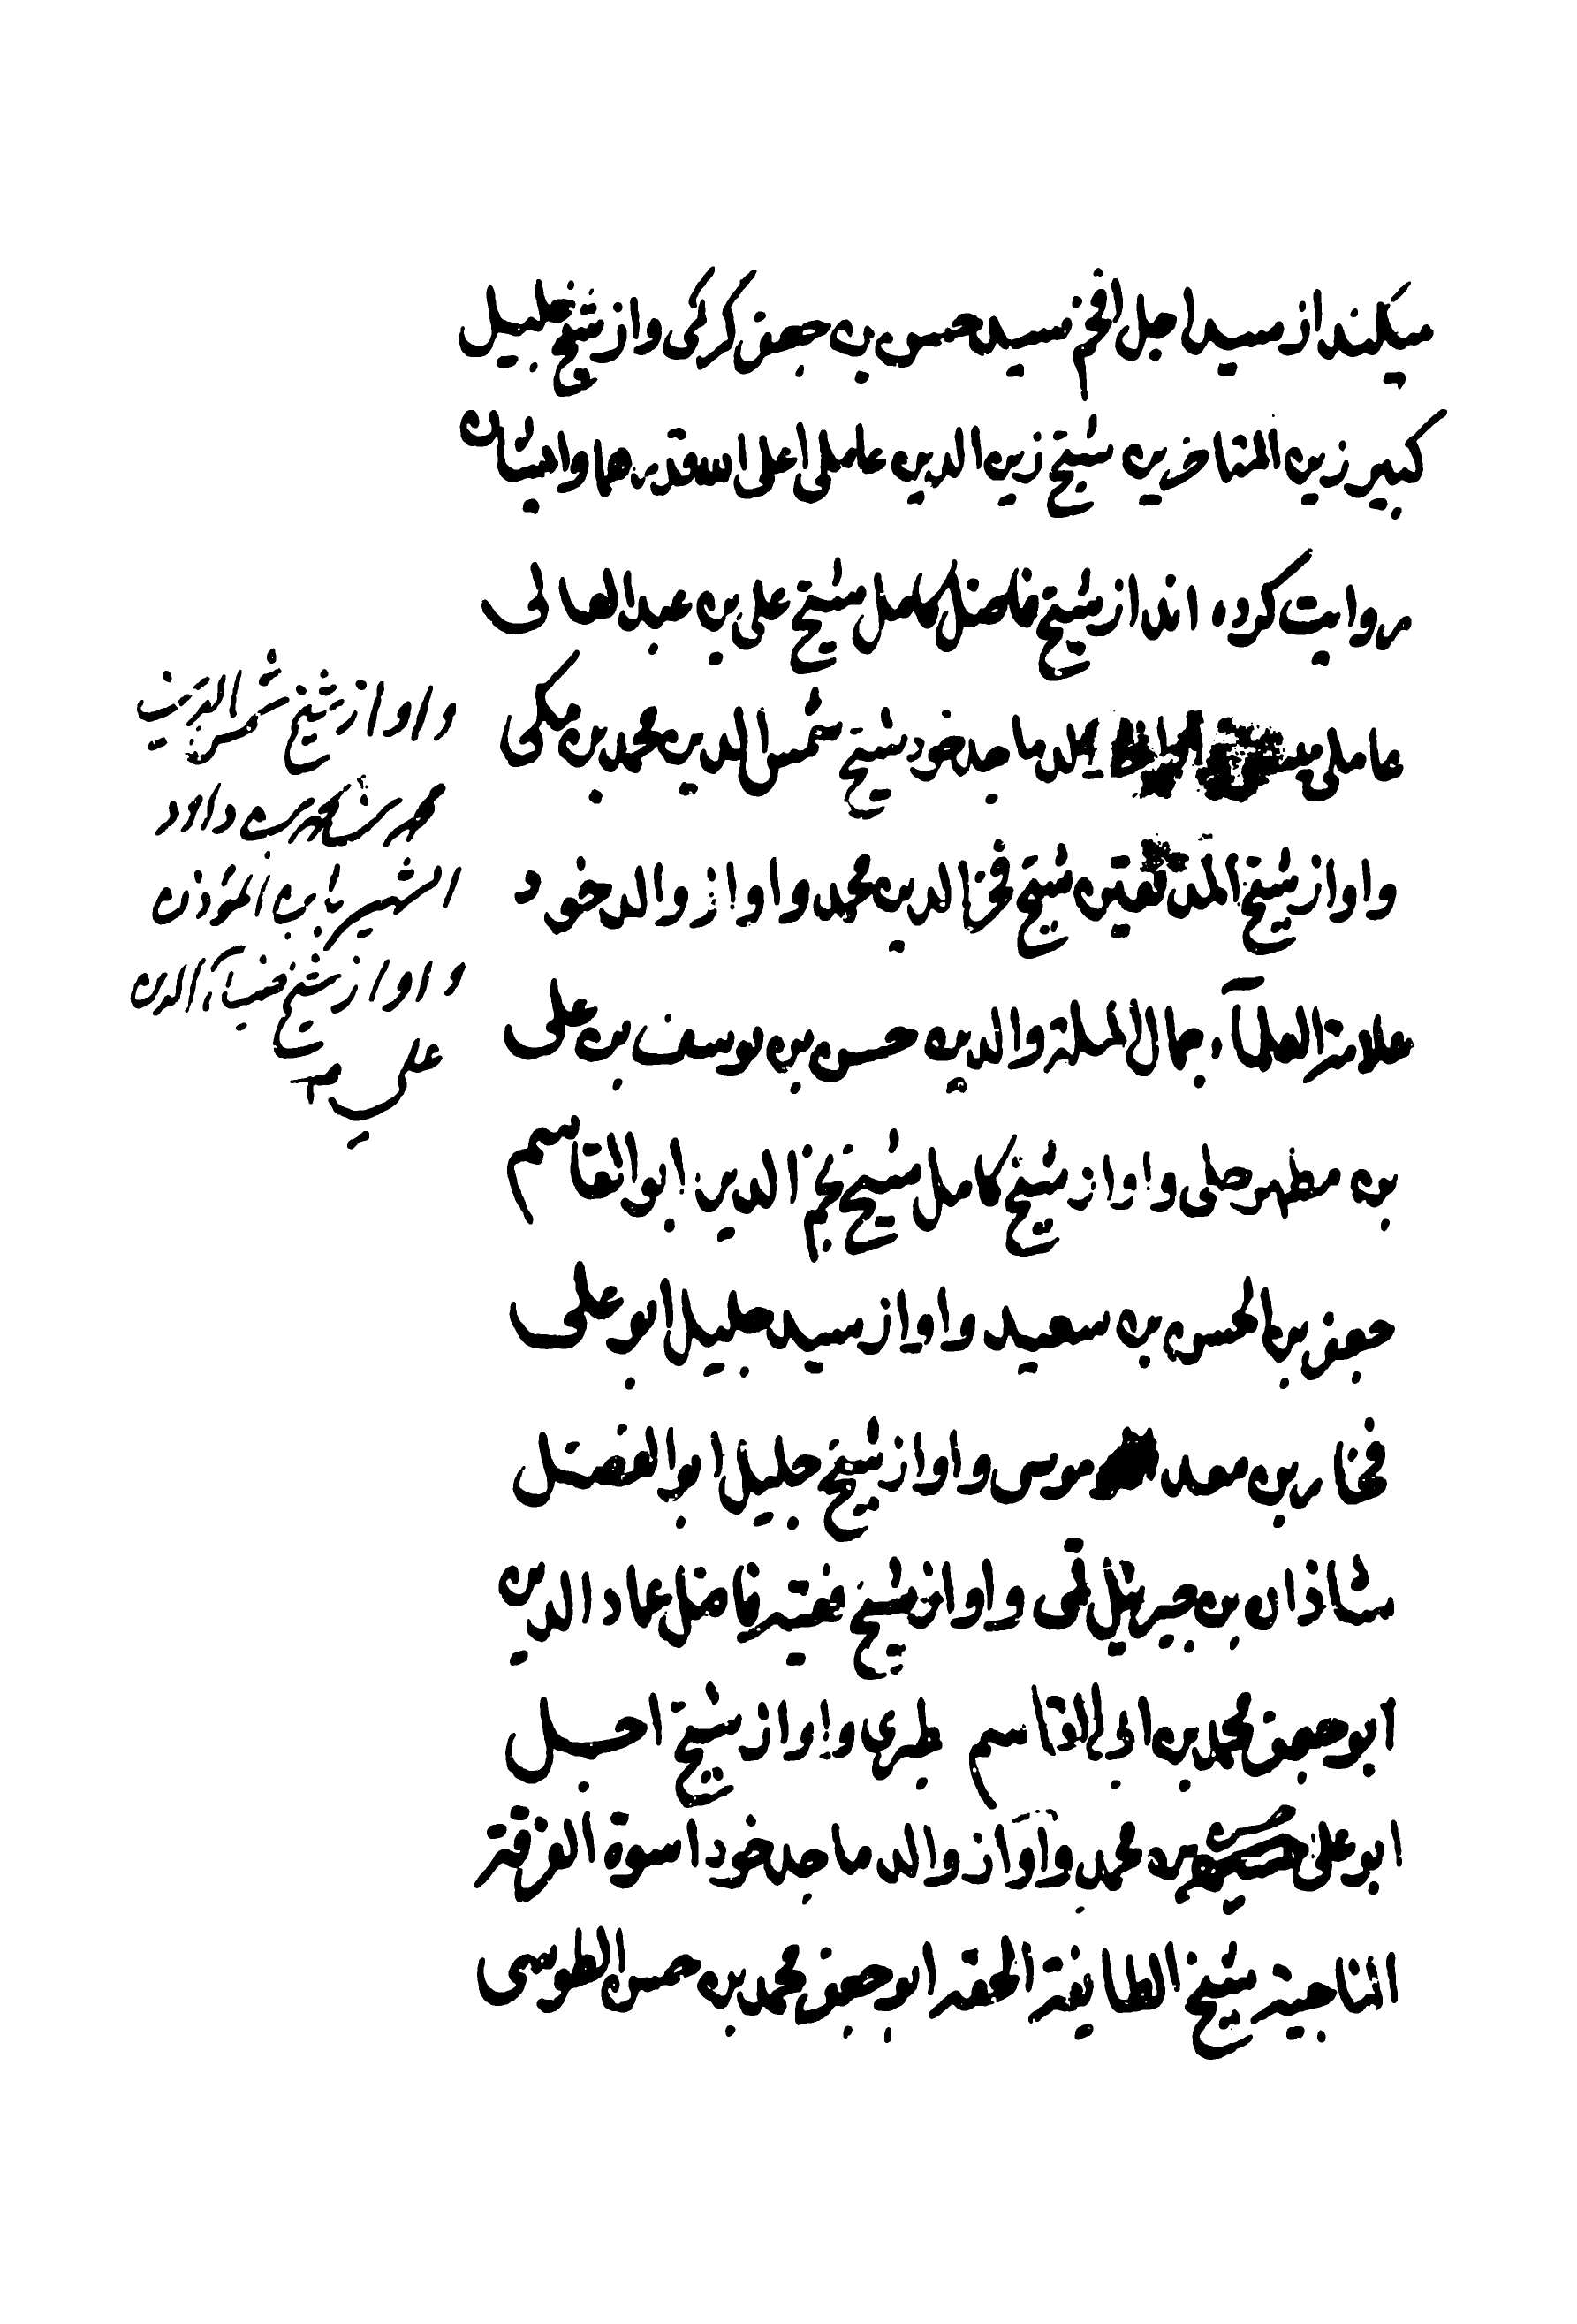 میکند از سید اجل افخم سید حسن بن جعفر کرکی و از شیخ جلیل
کبیر زین المتاخرین شیخ زین الدین عاملی اعلی الله قدرهما و ایشان
روایت کرده اند از شیخ فاضل کامل شیخ علی بن عبد العالی
عاملی ماجد خود شیخ شمس الدین محمد بن مکی
و او از شیخ المدققین شیخ فخر الدین محمد و او از والد خود
علامة العلمآء جمال الملة والدین حسن بن یوسف بن علی
بن مطهر حلی و او از شیخ کامل شیخ نجم الدین ابو القاسم
جعفر بن الحسن بن سعید و او از سید جلیل ابو علی
فخار بن معد موسی و او از شیخ جلیل ابو الفضل
شاذان بن جبرئیل قمی و او از شیخ فقیه فاضل عماد الدین
ابو جعفر محمد بن ابی القاسم طبری و او از شیخ اجل
ابو علی بن محمد و او از والد ماجد خود اسوة الفرقة
الناجیة شیخ الطایفة الحقه ابو جعفر محمد بن حسن الطوسی
و او از شیخ شمس الدین
محمد بن داود
الشهیر بابن المؤذن
و او از شیخ ضیآء الدین
علی